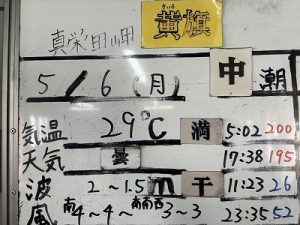 真栄田岬 きいろ 黄旗
5/6(月) 中潮
気温 29℃ 満 5:02 200
天気 曇 17:38 195
波 2~1.5m 干 11:23 26
風 南4~4~南南西3~3 23:35 52